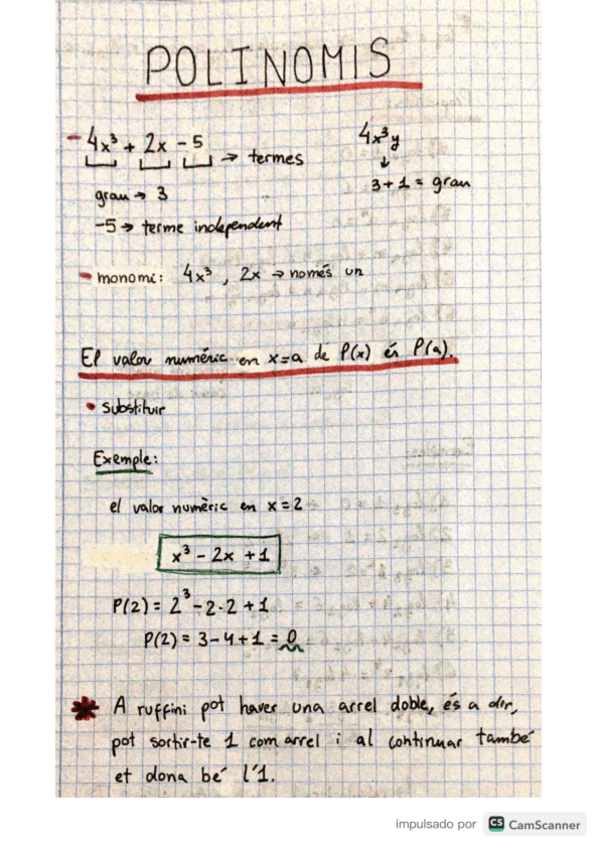 POLINOMIS
- 4x³ + 2x - 5 → termes
4x³y
↓
3+1 = grau
grau → 3
-5 → terme independent
- monomi: 4x³, 2x → només un
El valor numéric en x=a de P(x) és P(a).
• substituir
Exemple:
el valor numèric en x=2
x³ - 2x + 1
P(2) = 2³ - 2·2 + 1
P(2) = 3 - 4 + 1 = 0
* A ruffini pot haver una arrel doble, és a dir,
pot sortir-te 1 com arrel i al continuar també
et dona bé l'1.
impulsado por CS CamScanner